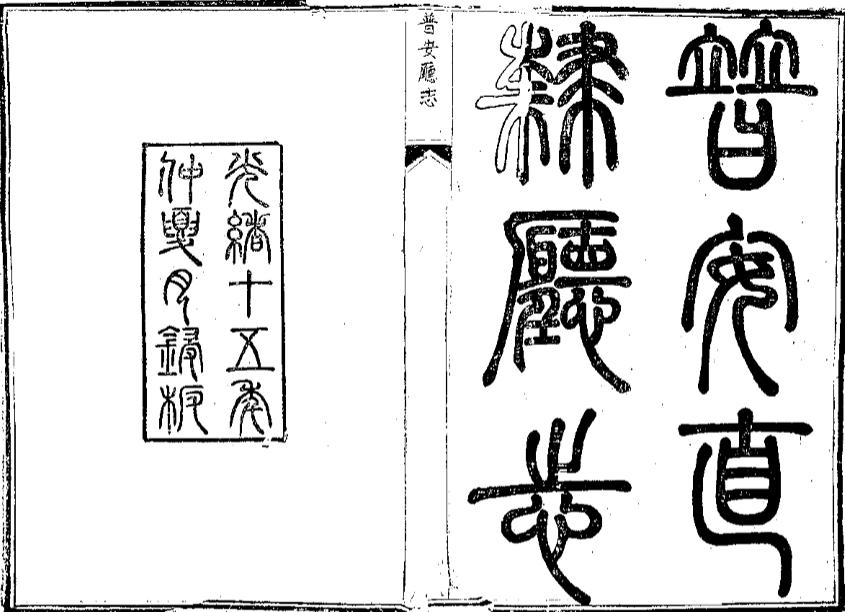 普安直
隸廳志
普安廳志
光緒十五年
仲夏月鋟板